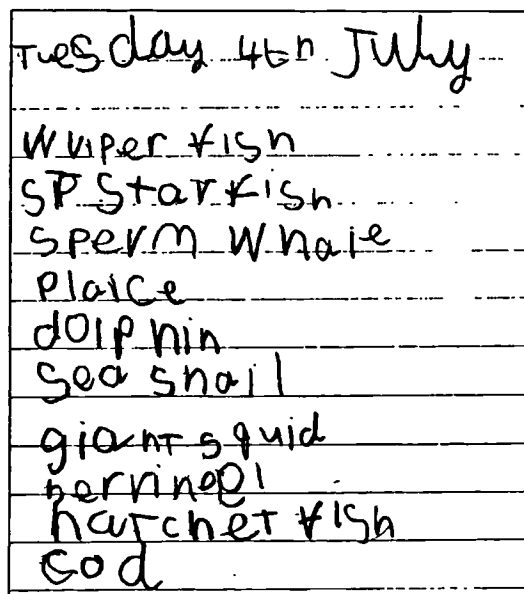 Tuesday 4th July
Wviper fish
SP Starfish
sperm whale
Plaice
dolphin
sea snail
giant squid
hatchet fish
cod